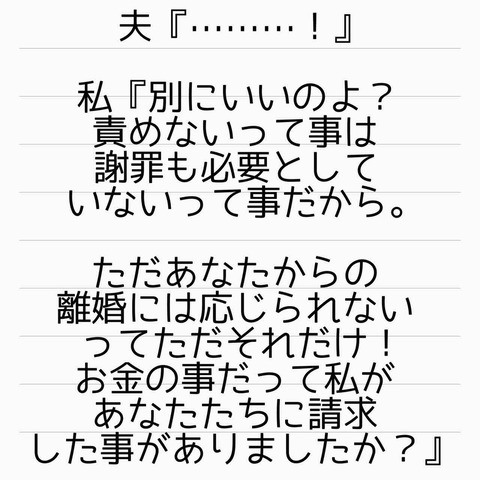 夫『………！』
私『別にいいのよ？
責めないって事は
謝罪も必要として
いないって事だから。
ただあなたからの
離婚には応じられない
ってただそれだけ！
お金の事だって私が
あなたたちに請求
した事がありましたか？』